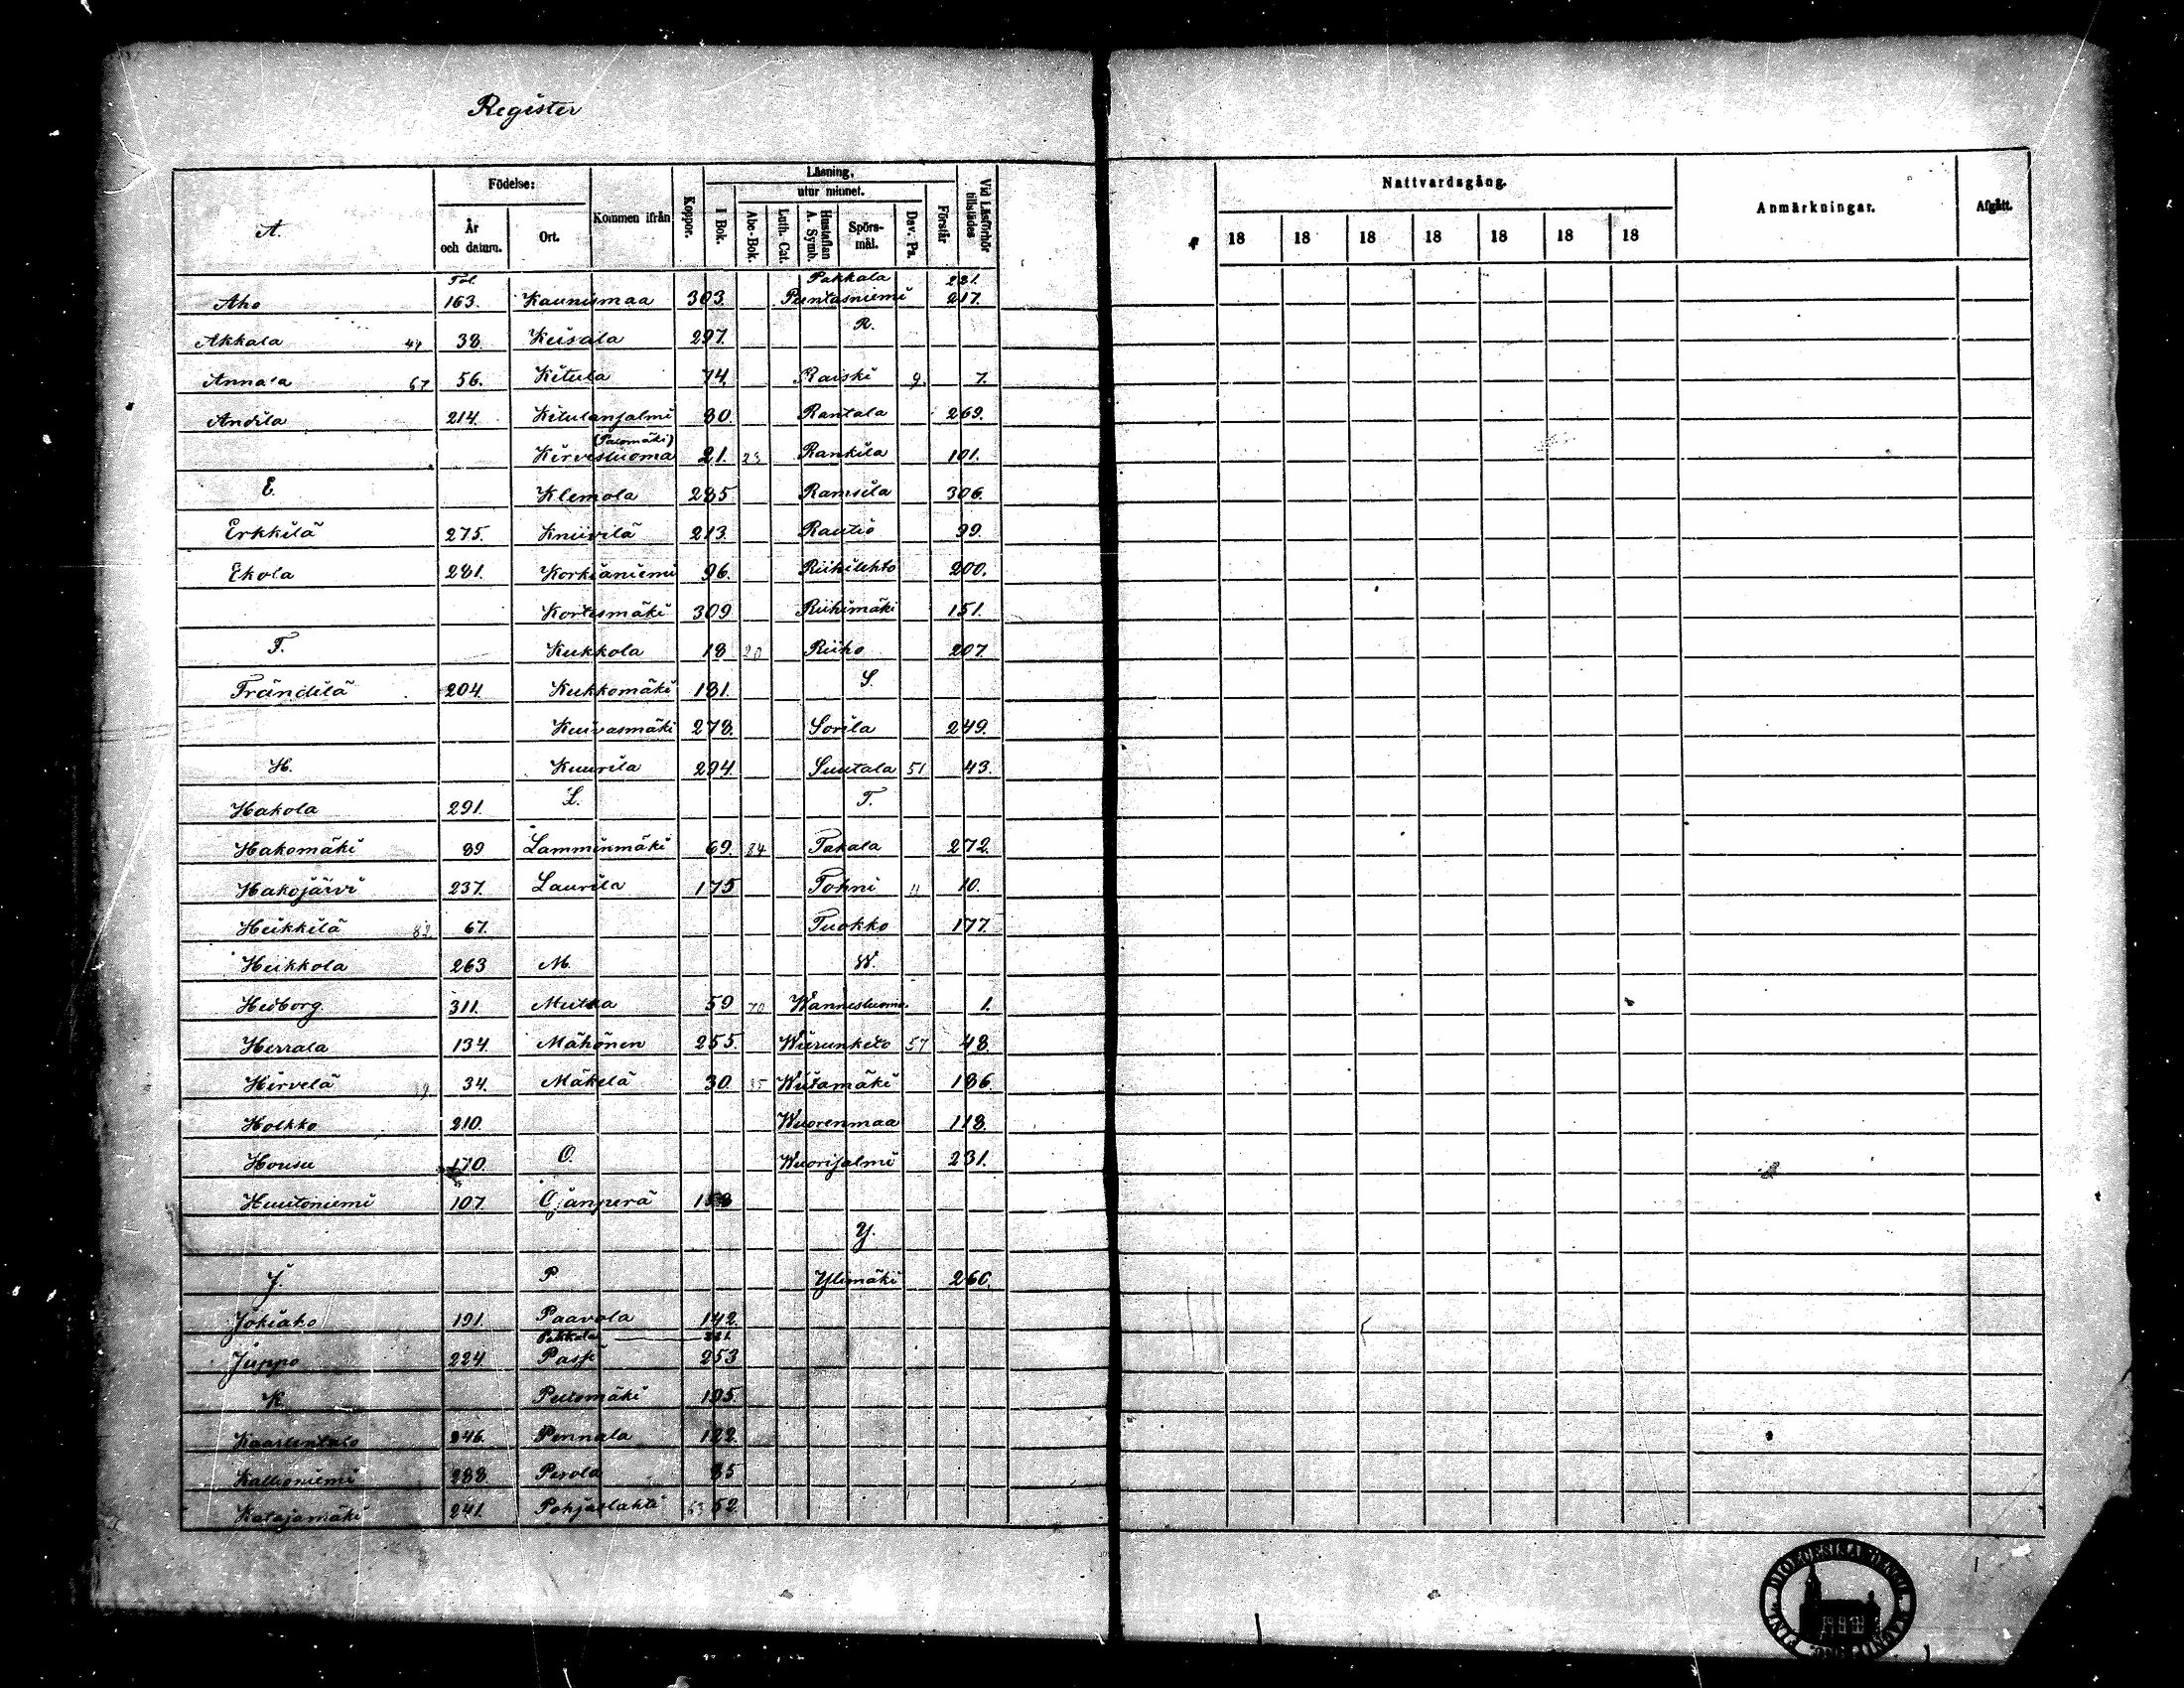 Register
A.
Födelse:
År och datum.
Ort.
Kommen ifrån
Koppor.
Läsning,
utur minnet.
I Bok.
Abc-Bok.
Luth. Cat.
Hustaflan A. Symb.
Spörs-mål.
Dav. Ps.
Förstår
Vid Läsförhör tillstädes
Nattvardsgång.
18 18 18 18 18 18 18
Anmärkningar.
Afgått.
Fol. Pakkala 221.
Aho 163. Kaunismaa 303. Puntasniemi 217.
Akkala 44 38. Keisala 297. R.
Annala 67 56. Kitula 74. Raiski 9. 7.
Andila 214. Kitulansalmi 80. Rantala 269.
(Palomäki)
Kirvesluoma 21. 23 Rankila 101.
E. Klemola 285 Ramsila 306.
Erkkilä 275. Kniivilä 213. Rautio 99.
Ekola 281. Korkianiemi 96. Riihilehto 200.
Kortesmäki 309 Riihimäki 151.
F. Kukkola 18 20 Riiho 207.
Frändilä 204. Kukkomäki 181. S.
Kuivasmäki 278. Sorila 249.
H. Kuurila 294. Suutala 51 43.
Hakola 291. L. T.
Hakomäki 89 Lamminmäki 69. 84 Takala 272.
Hakojärvi 237. Laurila 175 Tohni 11 10.
Heikkilä 82 67. Tuokko 177.
Heikkola 263 M. W.
Hedborg 311. Mutka 59 70 Wannesluoma 1.
Herrala 134. Mähönen 255. Wiirunketo 57 48.
Hirvelä 34. Mäkelä 30 35 Wiitamäki 186.
Holkko 210. Wuorenmaa 118.
Housu 170. O. Wuorisalmi 231.
Huutoniemi 107. Ojanperä
Y.
J. P Ylimäki 260.
Jokiaho 191. Paavola 142.
Pakkala 221.
Juppo 224. Passi 253
K Peltomäki 195.
Kaarlentalo 246. Pennala 122.
Kallioniemi 288. Perola 85
Katajamäki 241. Pohjaslahti 63 52.